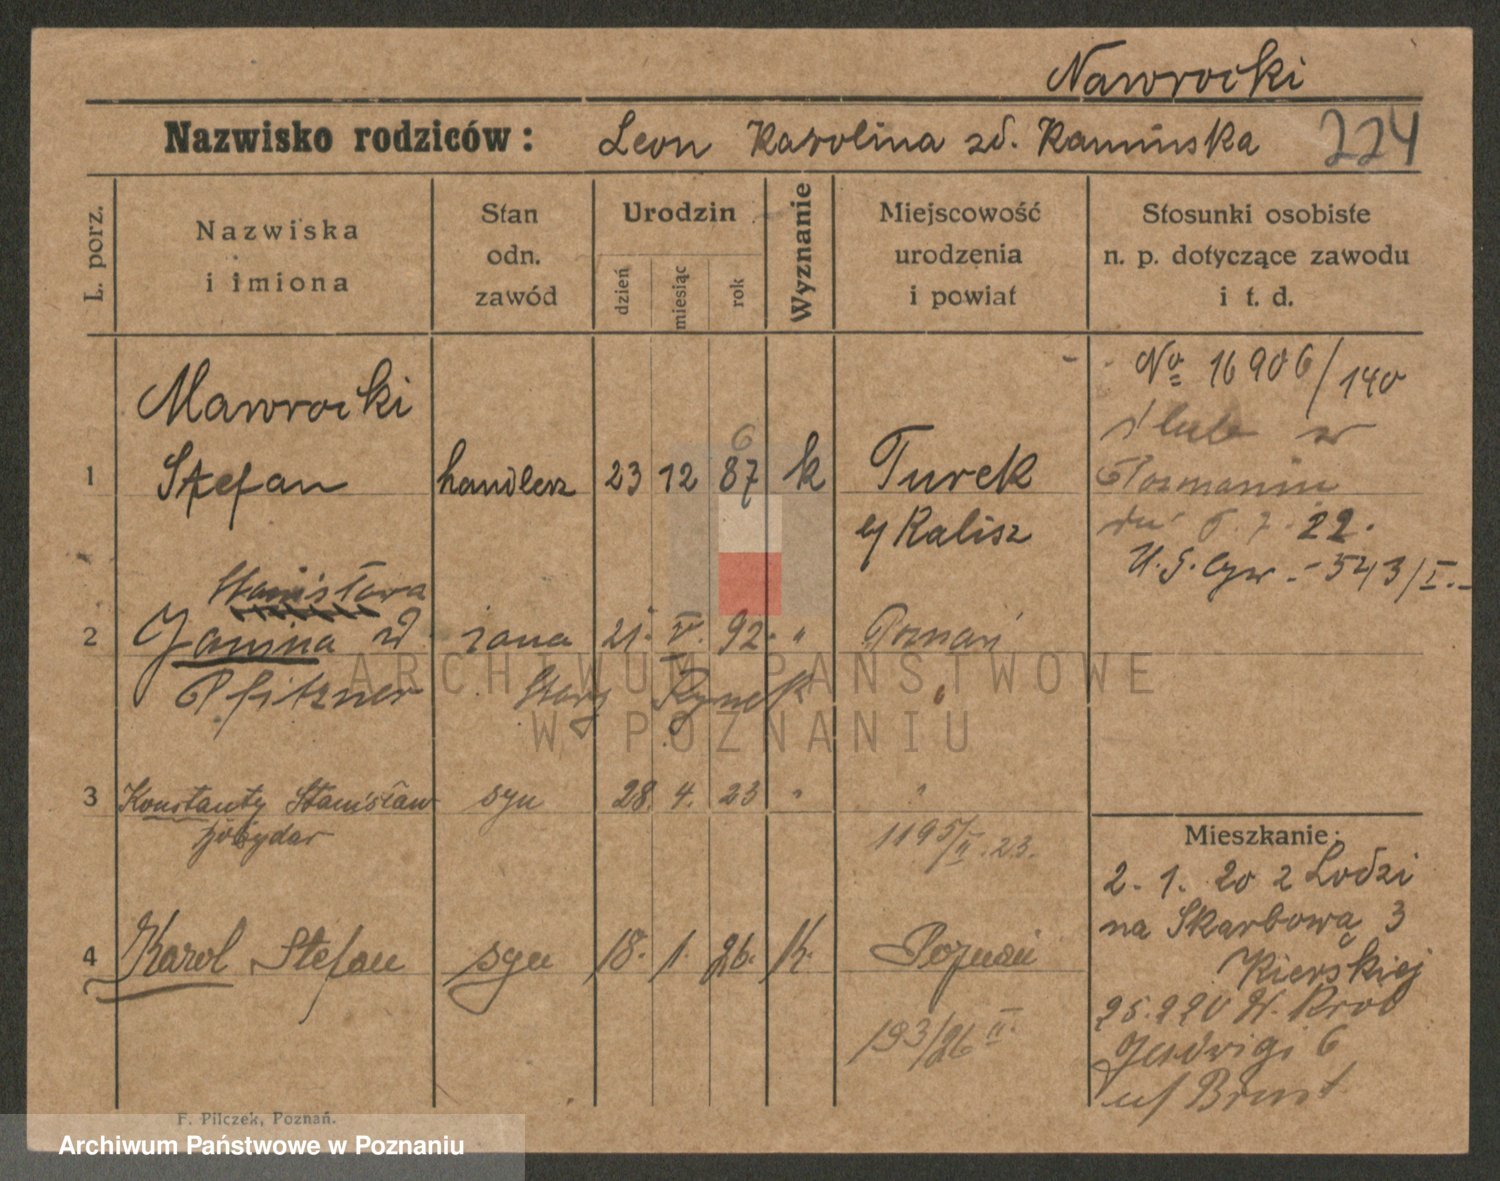 Nawrocki
Nazwisko rodziców: Leon Karolina zd. Kamińska 224
L. porz.
Nazwiska
i imiona
Stan
odn.
zawód
Urodzin
dzień
miesiąc
rok
Wyznanie
Miejscowość
urodzenia
i powiat
Stosunki osobiste
n. p. dotyczące zawodu
i t. d.
No 16906/140
Nawrocki
ślub w
6
1 Stefan handlerz 23 12 87 k Turek
Poznaniu
Kalisz
7. 22.
U.S. Cyw. - 543/I.-
Stanisława
2 Janina zd żona 21. V. 92. " Poznań
Pfitzner Stary Rynek "
3 Konstanty Stanisław syn 28. 4. 23 " "
1195/II. 23.
Mieszkanie:
2. 1. 20 z Łodzi
na Skarbową 3
4 Karol Stefan syn 18. 1. 26. K. Poznań
Jadwigi 6
193/26 II.
F. Pilczek, Poznań.
ARCHIWUM PAŃSTWOWE
W POZNANIU
Archiwum Państwowe w Poznaniu